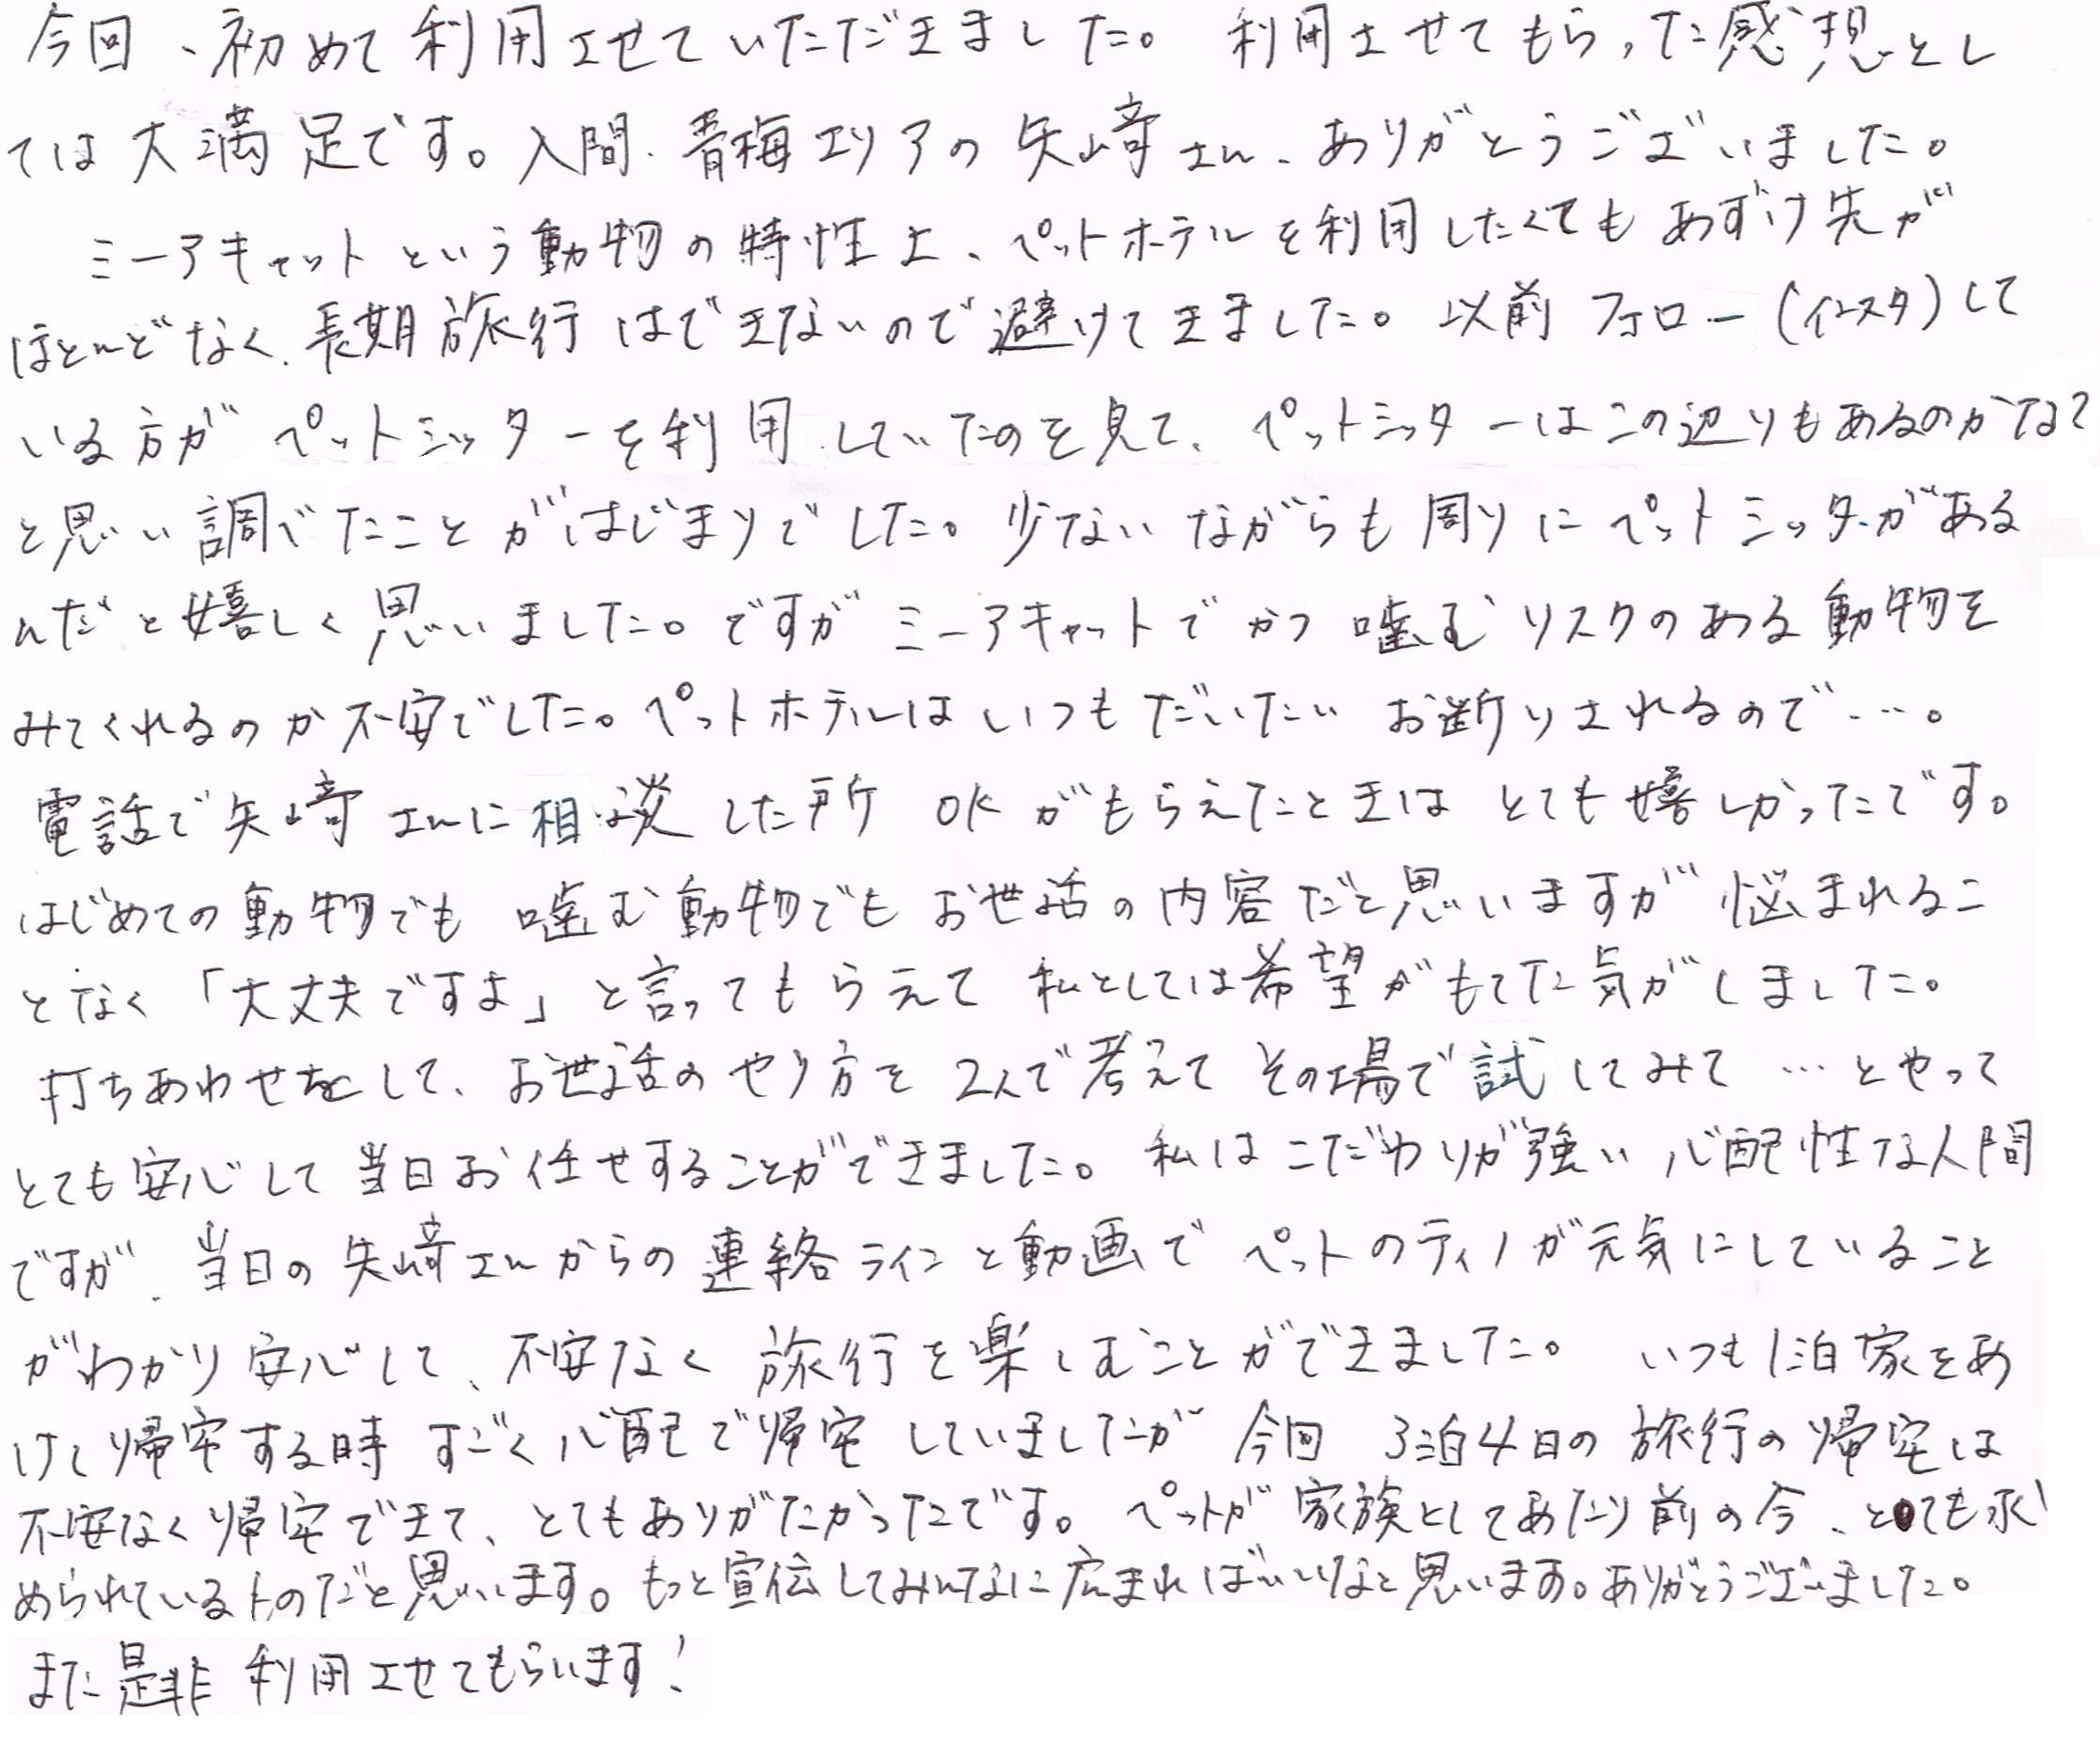 今回、初めて利用させていただきました。利用させてもらった感想とし
ては大満足です。入間、青梅エリアの矢崎さん、ありがとうございました。
ミーアキャットという動物の特性上、ペットホテルを利用したくてもあずけ先が
ほとんどなく、長期旅行はできないので避けてきました。以前フォロー(インスタ)して
いる方がペットシッターを利用していたのを見て、ペットシッターはこの辺りもあるのかな?
と思い調べたことがはじまりでした。少ないながらも周りにペットシッターがある
んだと嬉しく思いました。ですがミーアキャットでかつ噛むリスクのある動物を
みてくれるのか不安でした。ペットホテルはいつもだいたいお断りされるので…。
電話で矢崎さんに相談した所OKがもらえたときはとても嬉しかったです。
はじめての動物でも噛む動物でもお世話の内容だと思いますが悩まれるこ
となく「大丈夫ですよ」と言ってもらえて私としては希望がもてた気がしました。
打ちあわせをして、お世話のやり方を2人で考えてその場で試してみて…とやって
とても安心して当日お任せすることができました。私はこだわりが強い心配性な人間
ですが、当日の矢崎さんからの連絡ラインと動画でペットのティノが元気にしていること
がわかり安心して、不安なく旅行を楽しむことができました。いつも1泊家をあ
けて帰宅する時すごく心配で帰宅していましたが今回3泊4日の旅行の帰宅は
不安なく帰宅できて、とてもありがたかったです。ペットが家族としてあたり前の今、とても求
められているものだと思います。もっと宣伝してみんなに広まればいいなと思います。ありがとうございました。
また是非利用させてもらいます!